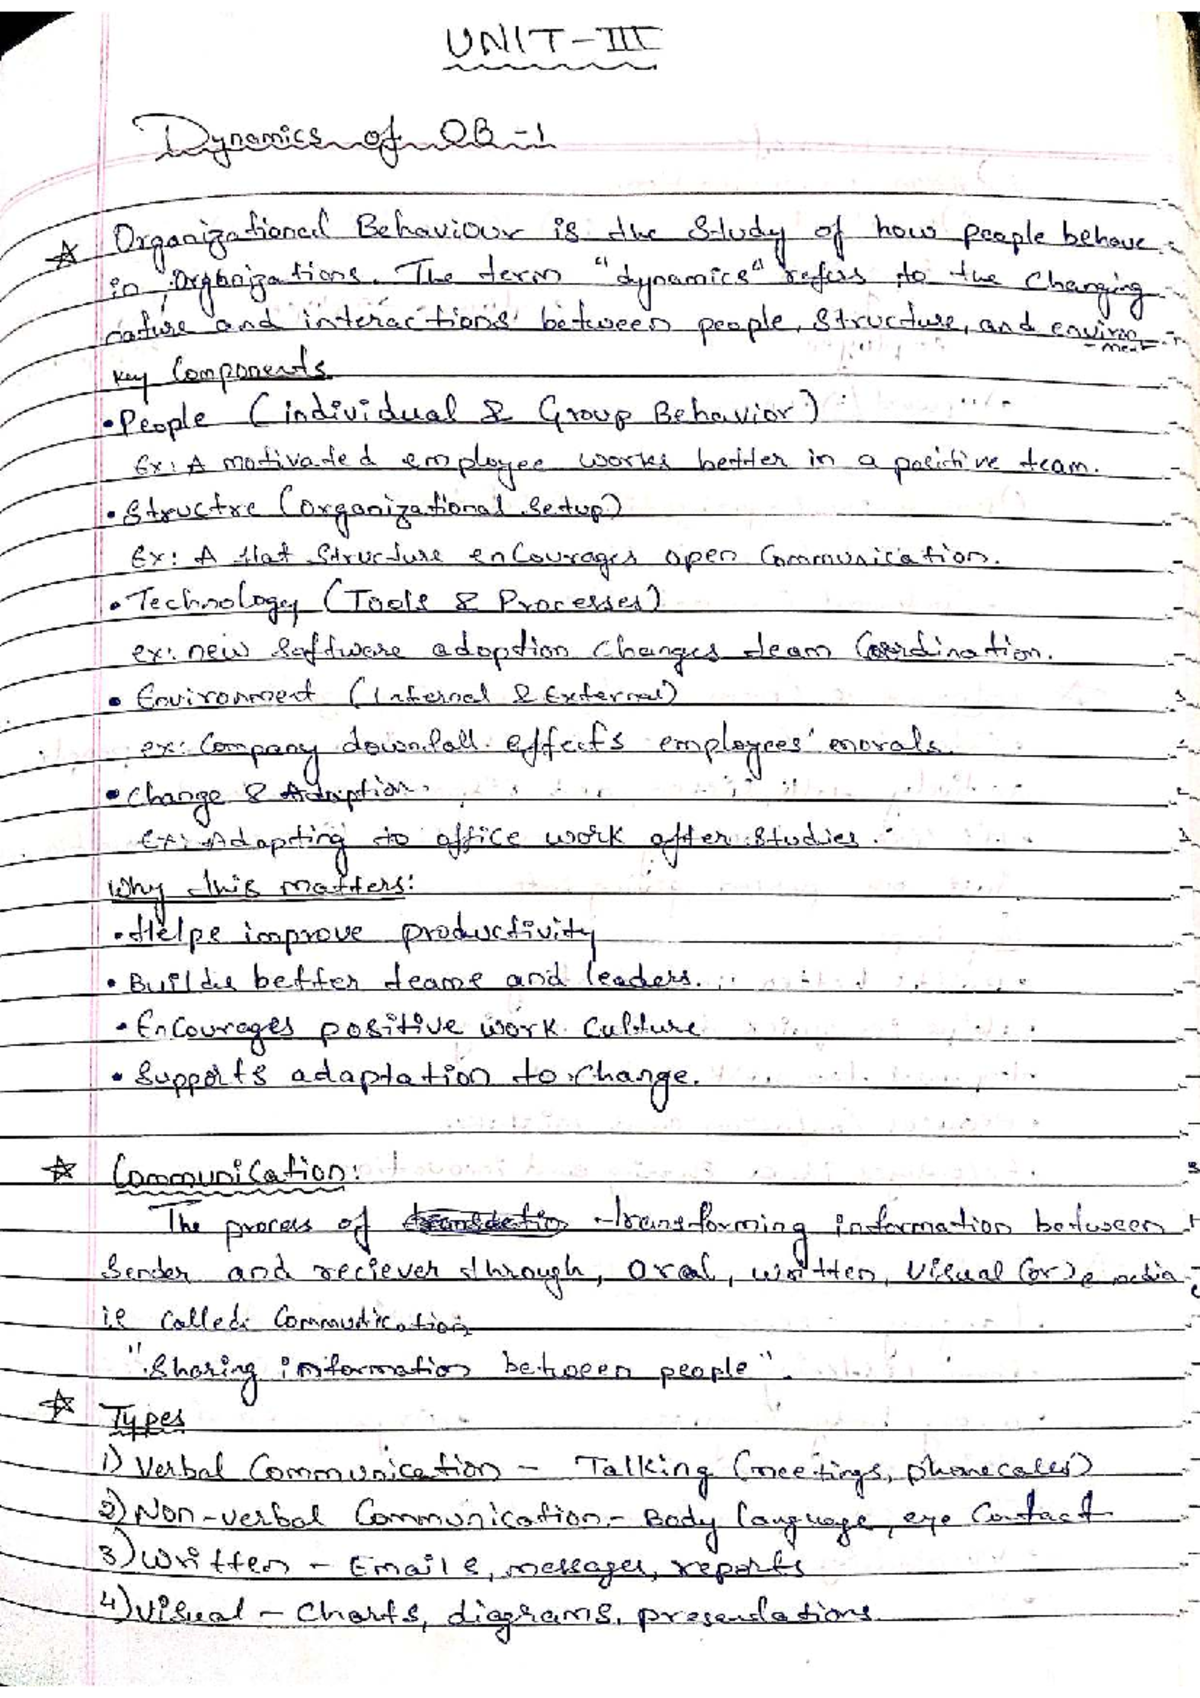 UNIT-III
Dynamics of OB-1
☆ Organizational Behaviour is the study of how people behave
in Organizations. The term "dynamics" refers to the changing
nature and interactions between people, structure, and environ
-ment
Key Components
• People (individual & Group Behavior)
Ex: A motivated employee works better in a positive team.
• Structre (organizational setup)
Ex: A flat structure encourages open communication.
• Technology (Tools & Processes)
ex: new software adoption changes team coordination.
• Environment (Internal & External)
ex: Company downfall effects employees' morals.
• Change & Adaption.
Ex: Adapting to office work after studies.
Why this matters:
• Helps improve productivity
• Builds better teams and leaders.
• Encourages positive work culture
• Supports adaptation to change.
☆ Communication:
The process of transforming information between
Sender and reciever through, oral, written, visual (or) e media
is called Communication
"Sharing information between people".
☆ Types
1) Verbal Communication - Talking (meetings, phonecalls)
2) Non-verbal Communication - Body language, eye contact
3) Written - Emails, messages, reports
4) Visual - Charts, diagrams, presendations